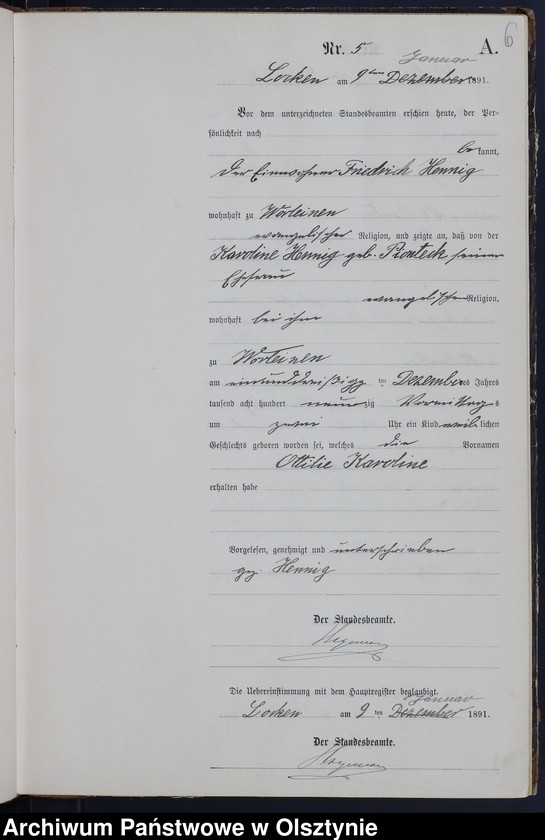 6
Nr. 5 A.
Januar
Locken am 9ten Dezember 1891.
Vor dem unterzeichneten Standesbeamten erschien heute, der Per-
sönlichkeit nach
be kannt,
der Einwohner Friedrich Hennig
wohnhaft zu Worleinen
evangelischer Religion, und zeigte an, daß von der
Karoline Hennig geb. seiner
Ehefrau
evangelischer Religion,
wohnhaft bei ihm
zu Worleinen
am einunddreißigg ten Dezember des Jahres
tausend acht hundert neun zig Vormittag s
um zwei Uhr ein Kind weib lichen
Geschlechts geboren worden sei, welches die Vornamen
Ottilie Karoline
erhalten habe
Vorgelesen, genehmigt und unterschrieben
gez. Hennig
Der Standesbeamte.
Die Uebereinstimmung mit dem Hauptregister beglaubigt.
Januar
Locken am 9 ten Dezember 1891.
Der Standesbeamte.
Archiwum Państwowe w Olsztynie